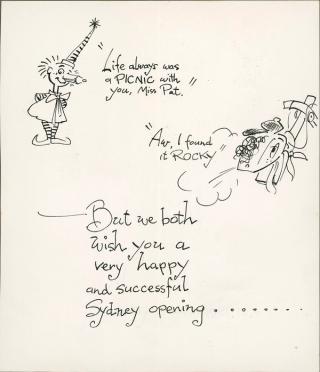 "Life always was
a PICNIC with
you, Miss Pat."
"Aw, I found
it ROCKY"
— But we both
wish you a
very happy
and successful
Sydney opening . . . . . . . .